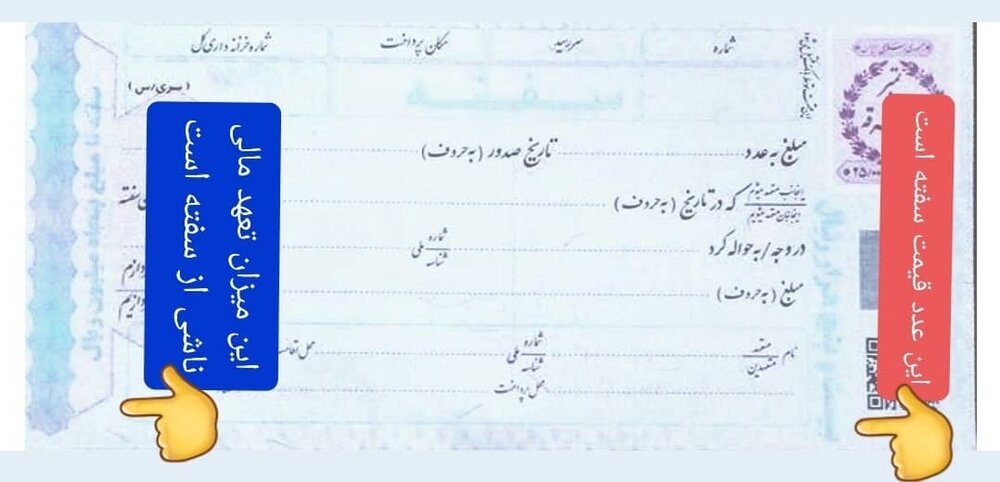 شماره
سررسید
مکان پرداخت
شماره خزانه داری کل
سفته
(سری/س)
مبلغ به عدد
تاریخ صدور (به حروف)
اینجانب متعهد میشوم
اینجانبان متعهد میشویم
که در تاریخ (به حروف)
سفته
در وجه / به حواله کرد
شماره ملی
شناسه
مبلغ (به حروف)
نام متعهد
متعهدین
شماره ملی
شناسه
محل اقامت
محل پرداخت
سفته تا مبلغ پنجاه میلیون ریال
این میزان تعهد مالی
ناشی از سفته است
این عدد قیمت سفته است